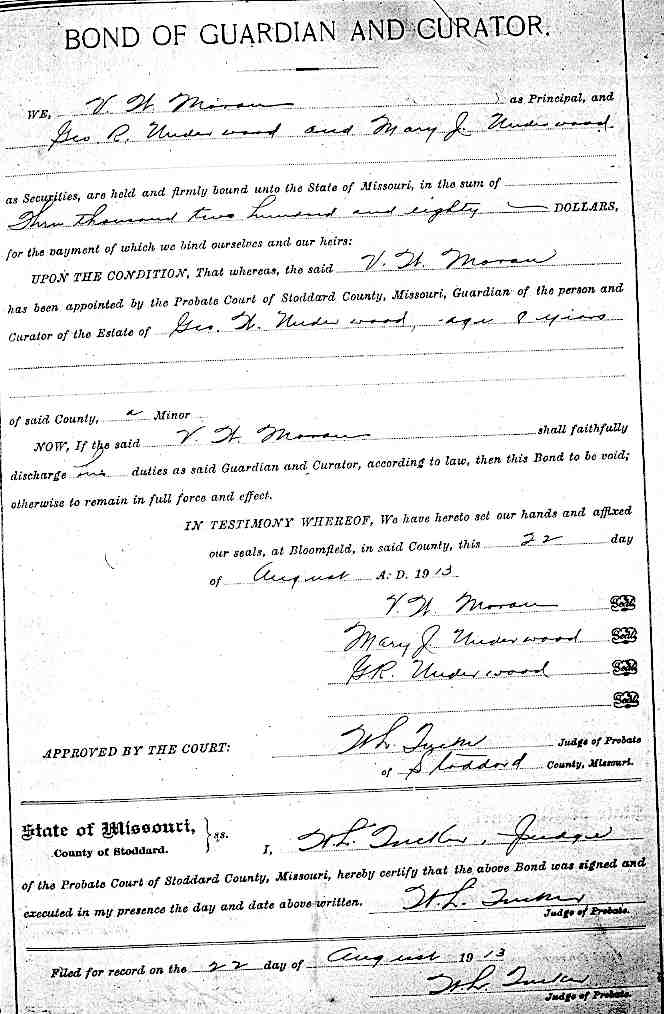 BOND OF GUARDIAN AND CURATOR.
WE, V. H. Moran as Principal, and
Geo R. Underwood and Mary J. Underwood
as Securities, are held and firmly bound unto the State of Missouri, in the sum of
Three thousand two hundred and eighty DOLLARS,
for the payment of which we bind ourselves and our heirs:
UPON THE CONDITION, That whereas, the said V. H. Moran
has been appointed by the Probate Court of Stoddard County, Missouri, Guardian of the person and
Curator of the Estate of Geo. H. Underwood, age 8 years
of said County, a Minor
NOW, If the said V. H. Moran shall faithfully
discharge his duties as said Guardian and Curator, according to law, then this Bond to be void;
otherwise to remain in full force and effect.
IN TESTIMONY WHEREOF, We have hereto set our hands and affixed
our seals, at Bloomfield, in said County, this 22 day
of August A. D. 1913
V. H. Moran Seal
Mary J. Underwood Seal
G R. Underwood Seal
Seal
APPROVED BY THE COURT: W L Tucker Judge of Probate
of Stoddard County, Missouri.
State of Missouri, } ss.
County of Stoddard. I, W L. Tucker, Judge
of the Probate Court of Stoddard County, Missouri, hereby certify that the above Bond was signed and
executed in my presence the day and date above written. W. L. Tucker
Judge of Probate.
Filed for record on the 22 day of August 1913
W L. Tucker
Judge of Probate.